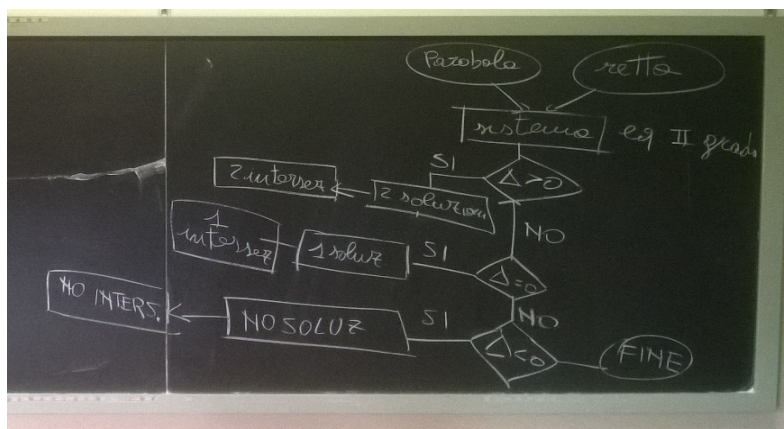 Parabola
retta
sistema eq II grado
Δ>0
SI
2 soluzioni
2 intersez
NO
Δ=0
SI
1 soluz
1
intersez
NO
Δ<0
SI
NO SOLUZ
NO INTERS.
FINE